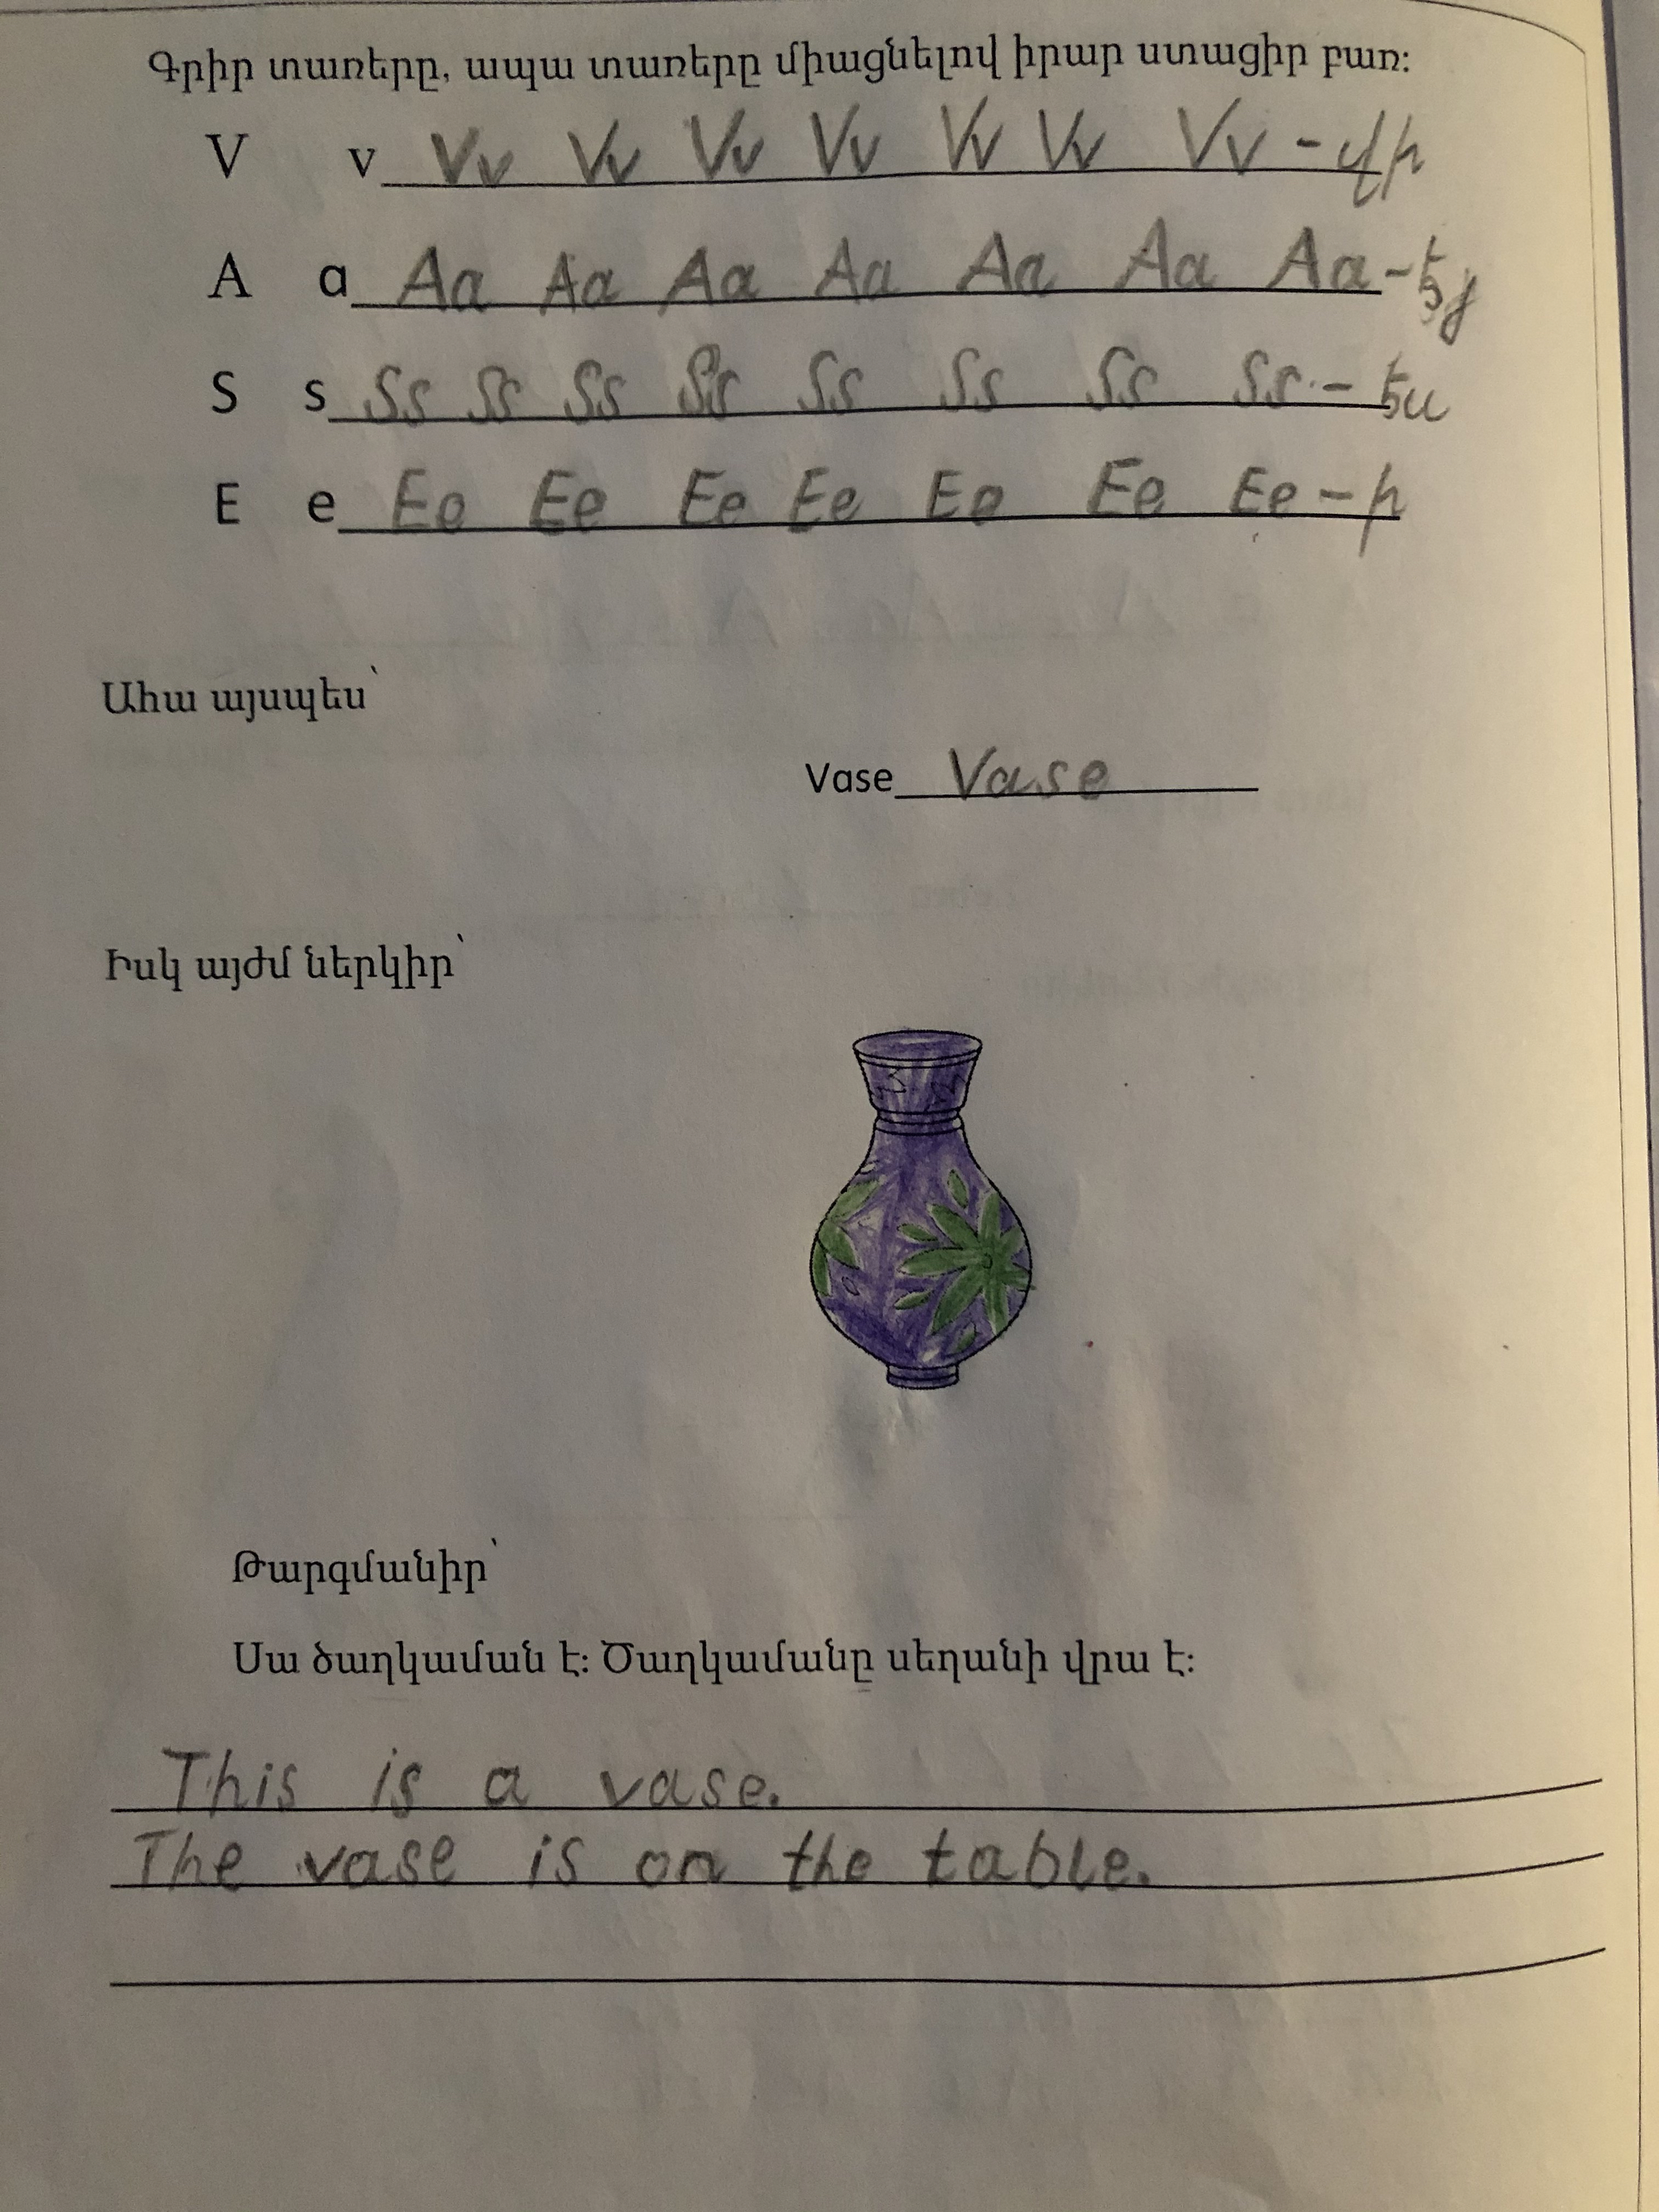 Գրիր տառերը, ապա տառերը միացնելով իրար ստացիր բառ:
V v Vv Vv Vv Vv Vv Vv Vv - վի
A a Aa Aa Aa Aa Aa Aa Aa - էյ
S s Ss Ss Ss Ss Ss Ss Ss Ss - ես
E e Ee Ee Ee Ee Ee Ee Ee - ի
Ահա այսպես՝
Vase Vase
Իսկ այժմ ներկիր՝
Թարգմանիր՝
Սա ծաղկաման է: Ծաղկամանը սեղանի վրա է:
This is a vase.
The vase is on the table.